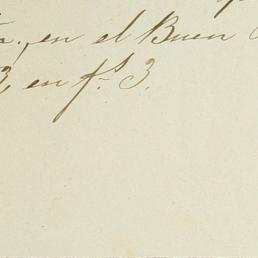 en el Buen
en f.s 3.